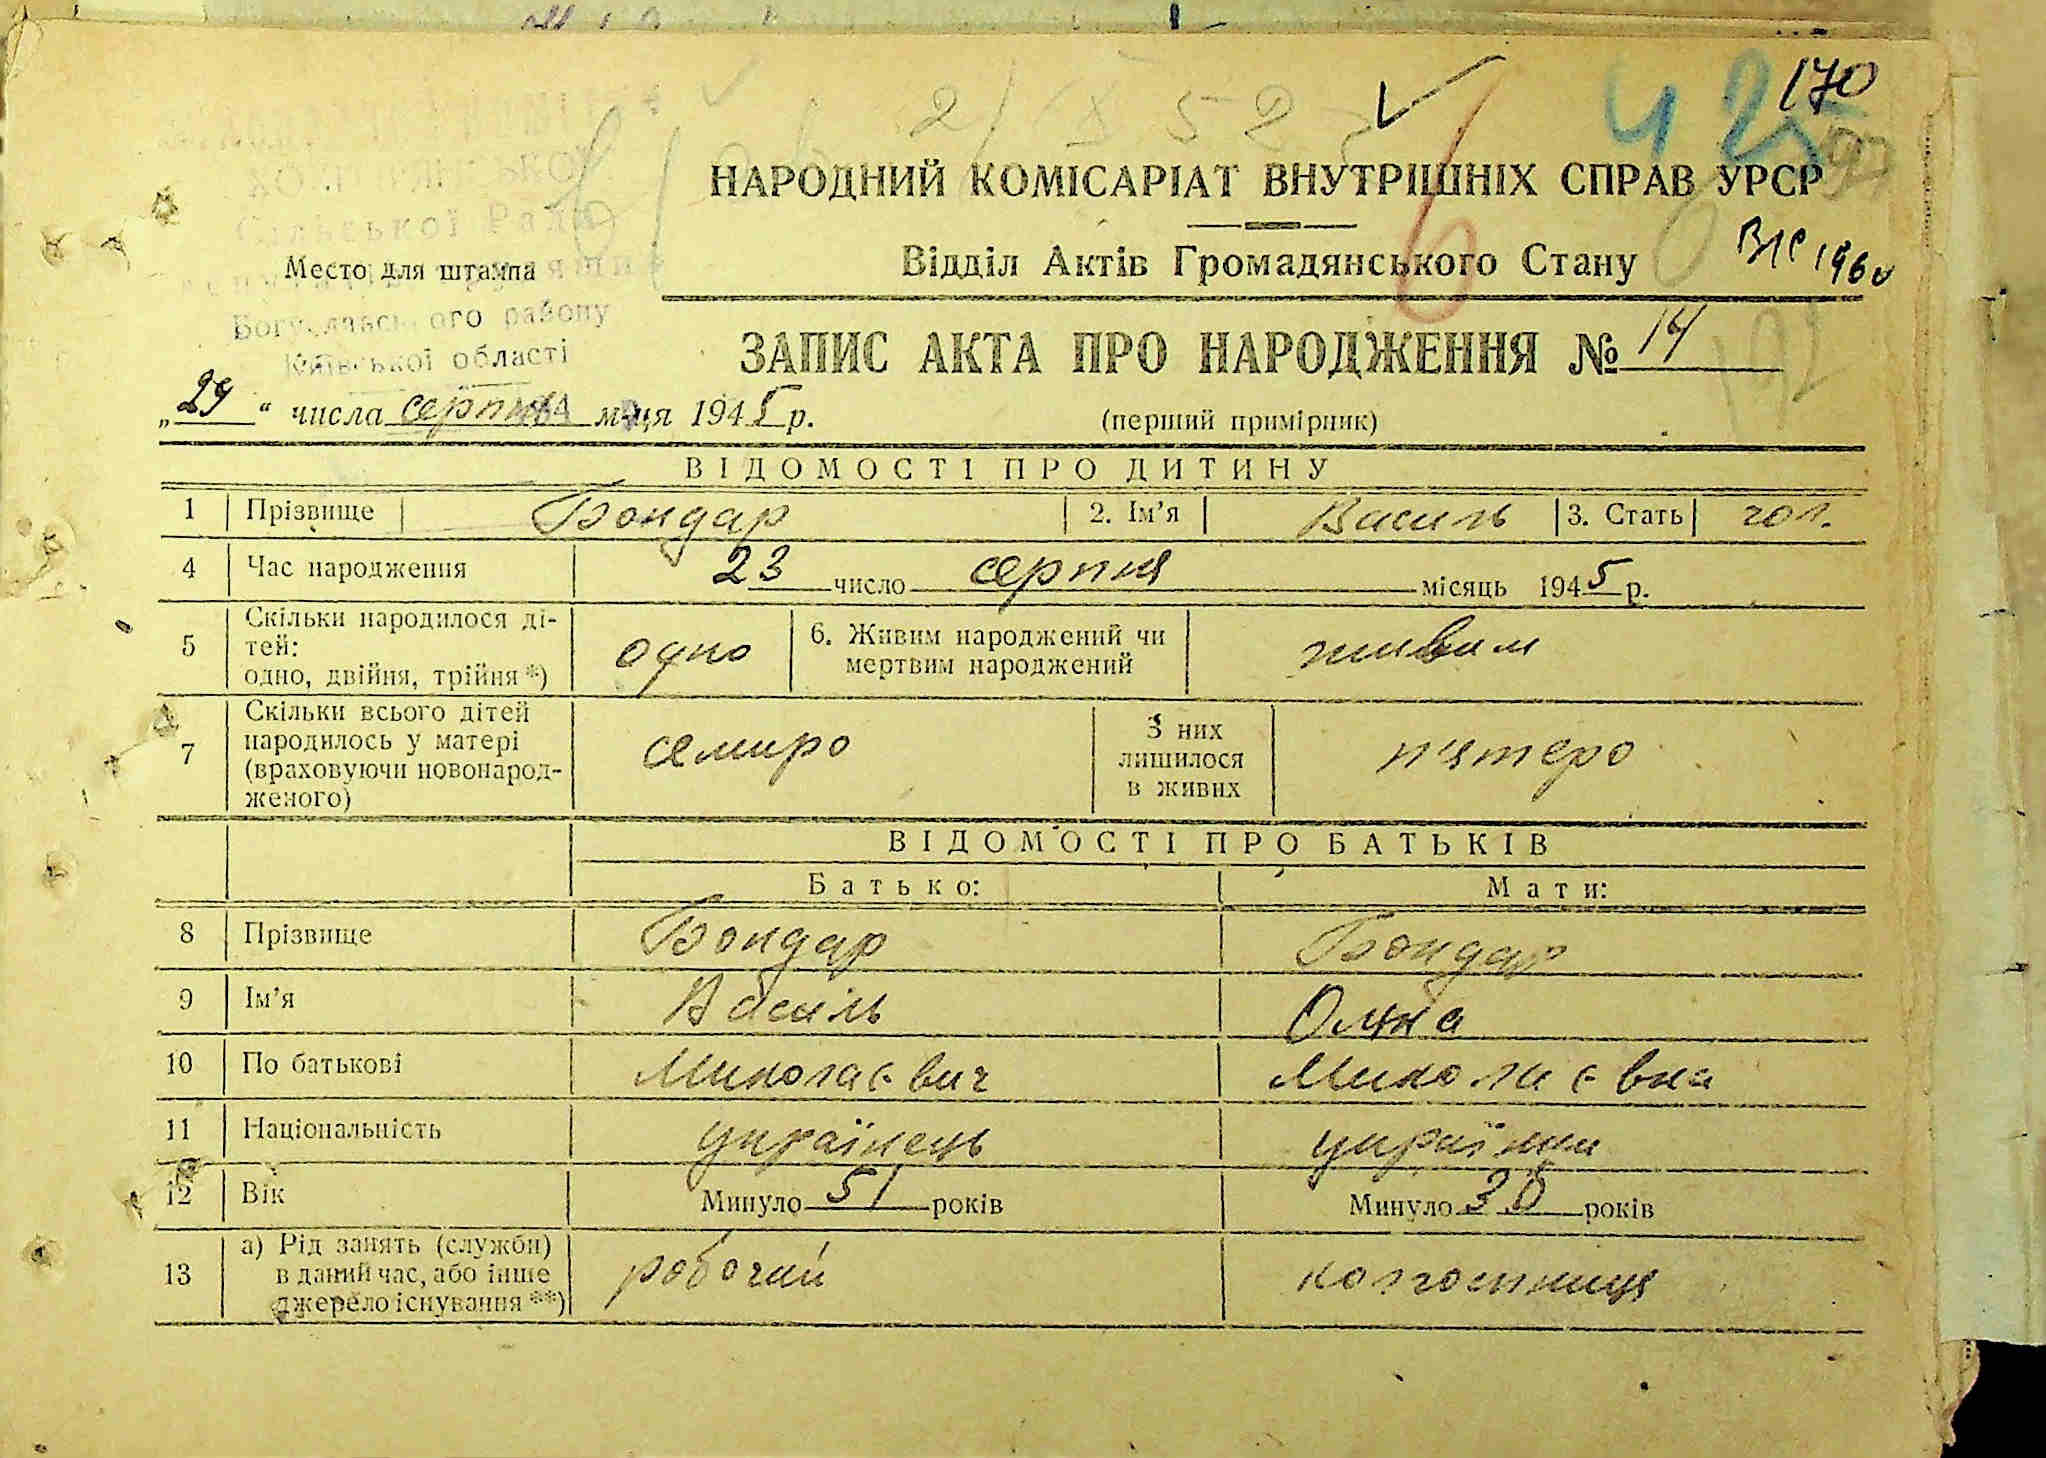 170
НАРОДНИЙ КОМІСАРІАТ ВНУТРІШНІХ СПРАВ УРСР
Сільської Ради
Відділ Актів Громадянського Стану
Место для штампа
Богуславського району
Київської області
ЗАПИС АКТА ПРО НАРОДЖЕННЯ № 14
„29“ числа серпня м-ця 1945 р.
(перший примірник)
ВІДОМОСТІ ПРО ДИТИНУ
1 Прізвище Бондар 2. Ім’я Василь 3. Стать чол.
4 Час народження 23 число серпня місяць 1945 р.
5 Скільки народилося ді-
тей:
одно, двійня, трійня *) одно 6. Живим народжений чи
мертвим народжений живим
7 Скільки всього дітей
народилось у матері
(враховуючи новонарод-
женого) семиро З них
лишилося
в живих п'ятеро
ВІДОМОСТІ ПРО БАТЬКІВ
Батько: Мати:
8 Прізвище Бондар Бондар
9 Ім’я Василь
10 По батькові Миколаєвич Миколаєвна
11 Національність українець українка
12 Вік Минуло 51 років Минуло 30 років
13 а) Рід занять (служби)
в даний час, або інше
джерело існування **) робочий колгоспниця